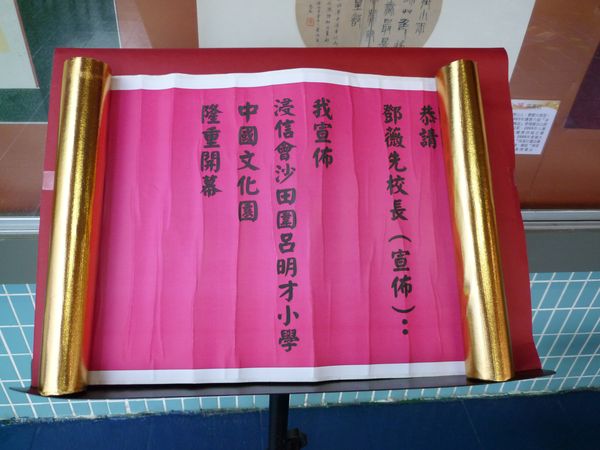 恭請
鄧薇先校長（宣佈）：
我宣佈
浸信會沙田圍呂明才小學
中國文化園
隆重開幕